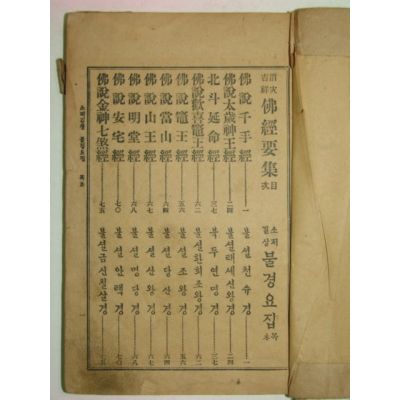 消災吉祥 佛經要集 目次
佛說千手經 一
佛說太歲神王經 二四
北斗延命經 三七
佛說歡喜竈王經 六二
佛說竈王經 五六
佛說當山經 六四
佛說山王經 六七
佛說明堂經 六八
佛說安宅經 七〇
佛說金神七煞經 七五
소재길상 불경요집 목차
불셜천슈경 一
불셜태세신왕경 二四
북두연명경 三七
불셜환희조왕경 六二
불셜조왕경 五六
불셜당산경 六四
불셜산왕경 六七
불셜명당경 六八
불셜안택경 七〇
불셜금신칠살경 七五
소재길상 불경요집 목차 一